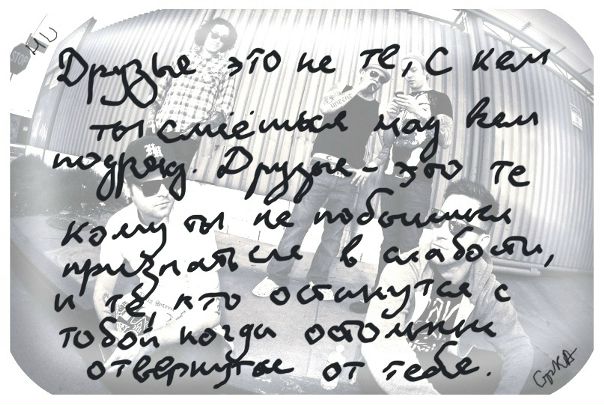 STOP
Друзья это не те, с кем
ты смеёшься над кем
подряд. Друзья - это те
кому ты не побоишься
признаться в слабости,
и те, кто останутся с
тобой когда остальные
отвернутся от тебя.